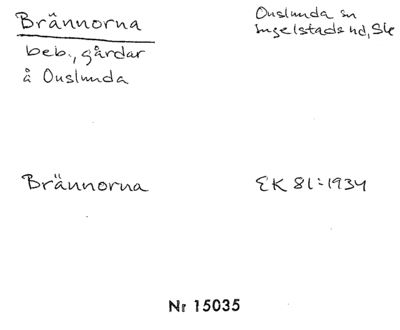 Brännorna
beb., gårdar
å Onslunda
Onslunda sn
Ingelstads hd, Sk
Brännorna
EK 81:1934
Nr 15035